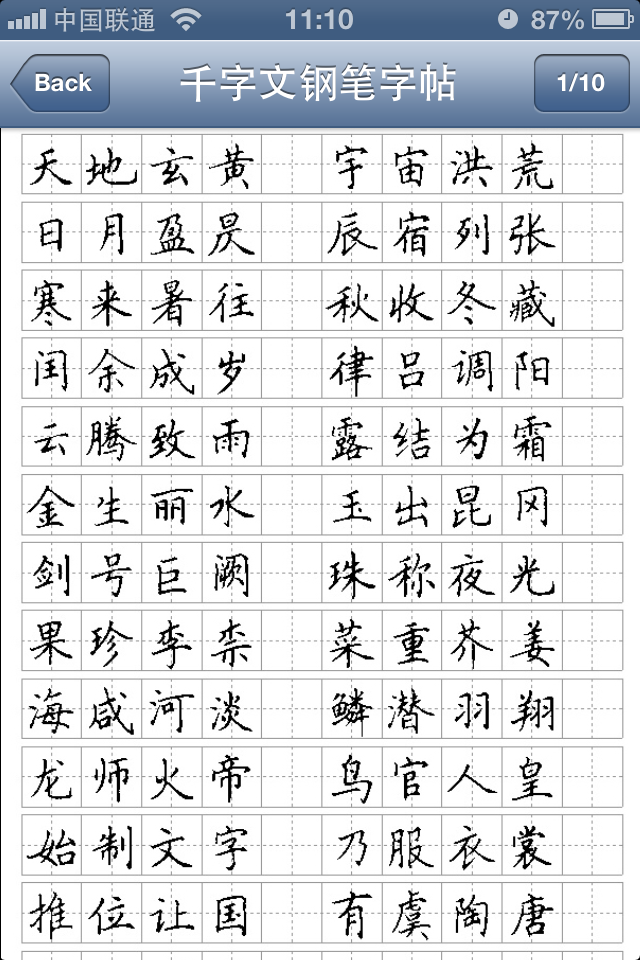 中国联通 11:10 87%
Back 千字文钢笔字帖 1/10
天地玄黄 宇宙洪荒
日月盈昃 辰宿列张
寒来暑往 秋收冬藏
闰余成岁 律吕调阳
云腾致雨 露结为霜
金生丽水 玉出昆冈
剑号巨阙 珠称夜光
果珍李柰 菜重芥姜
海咸河淡 鳞潜羽翔
龙师火帝 鸟官人皇
始制文字 乃服衣裳
推位让国 有虞陶唐